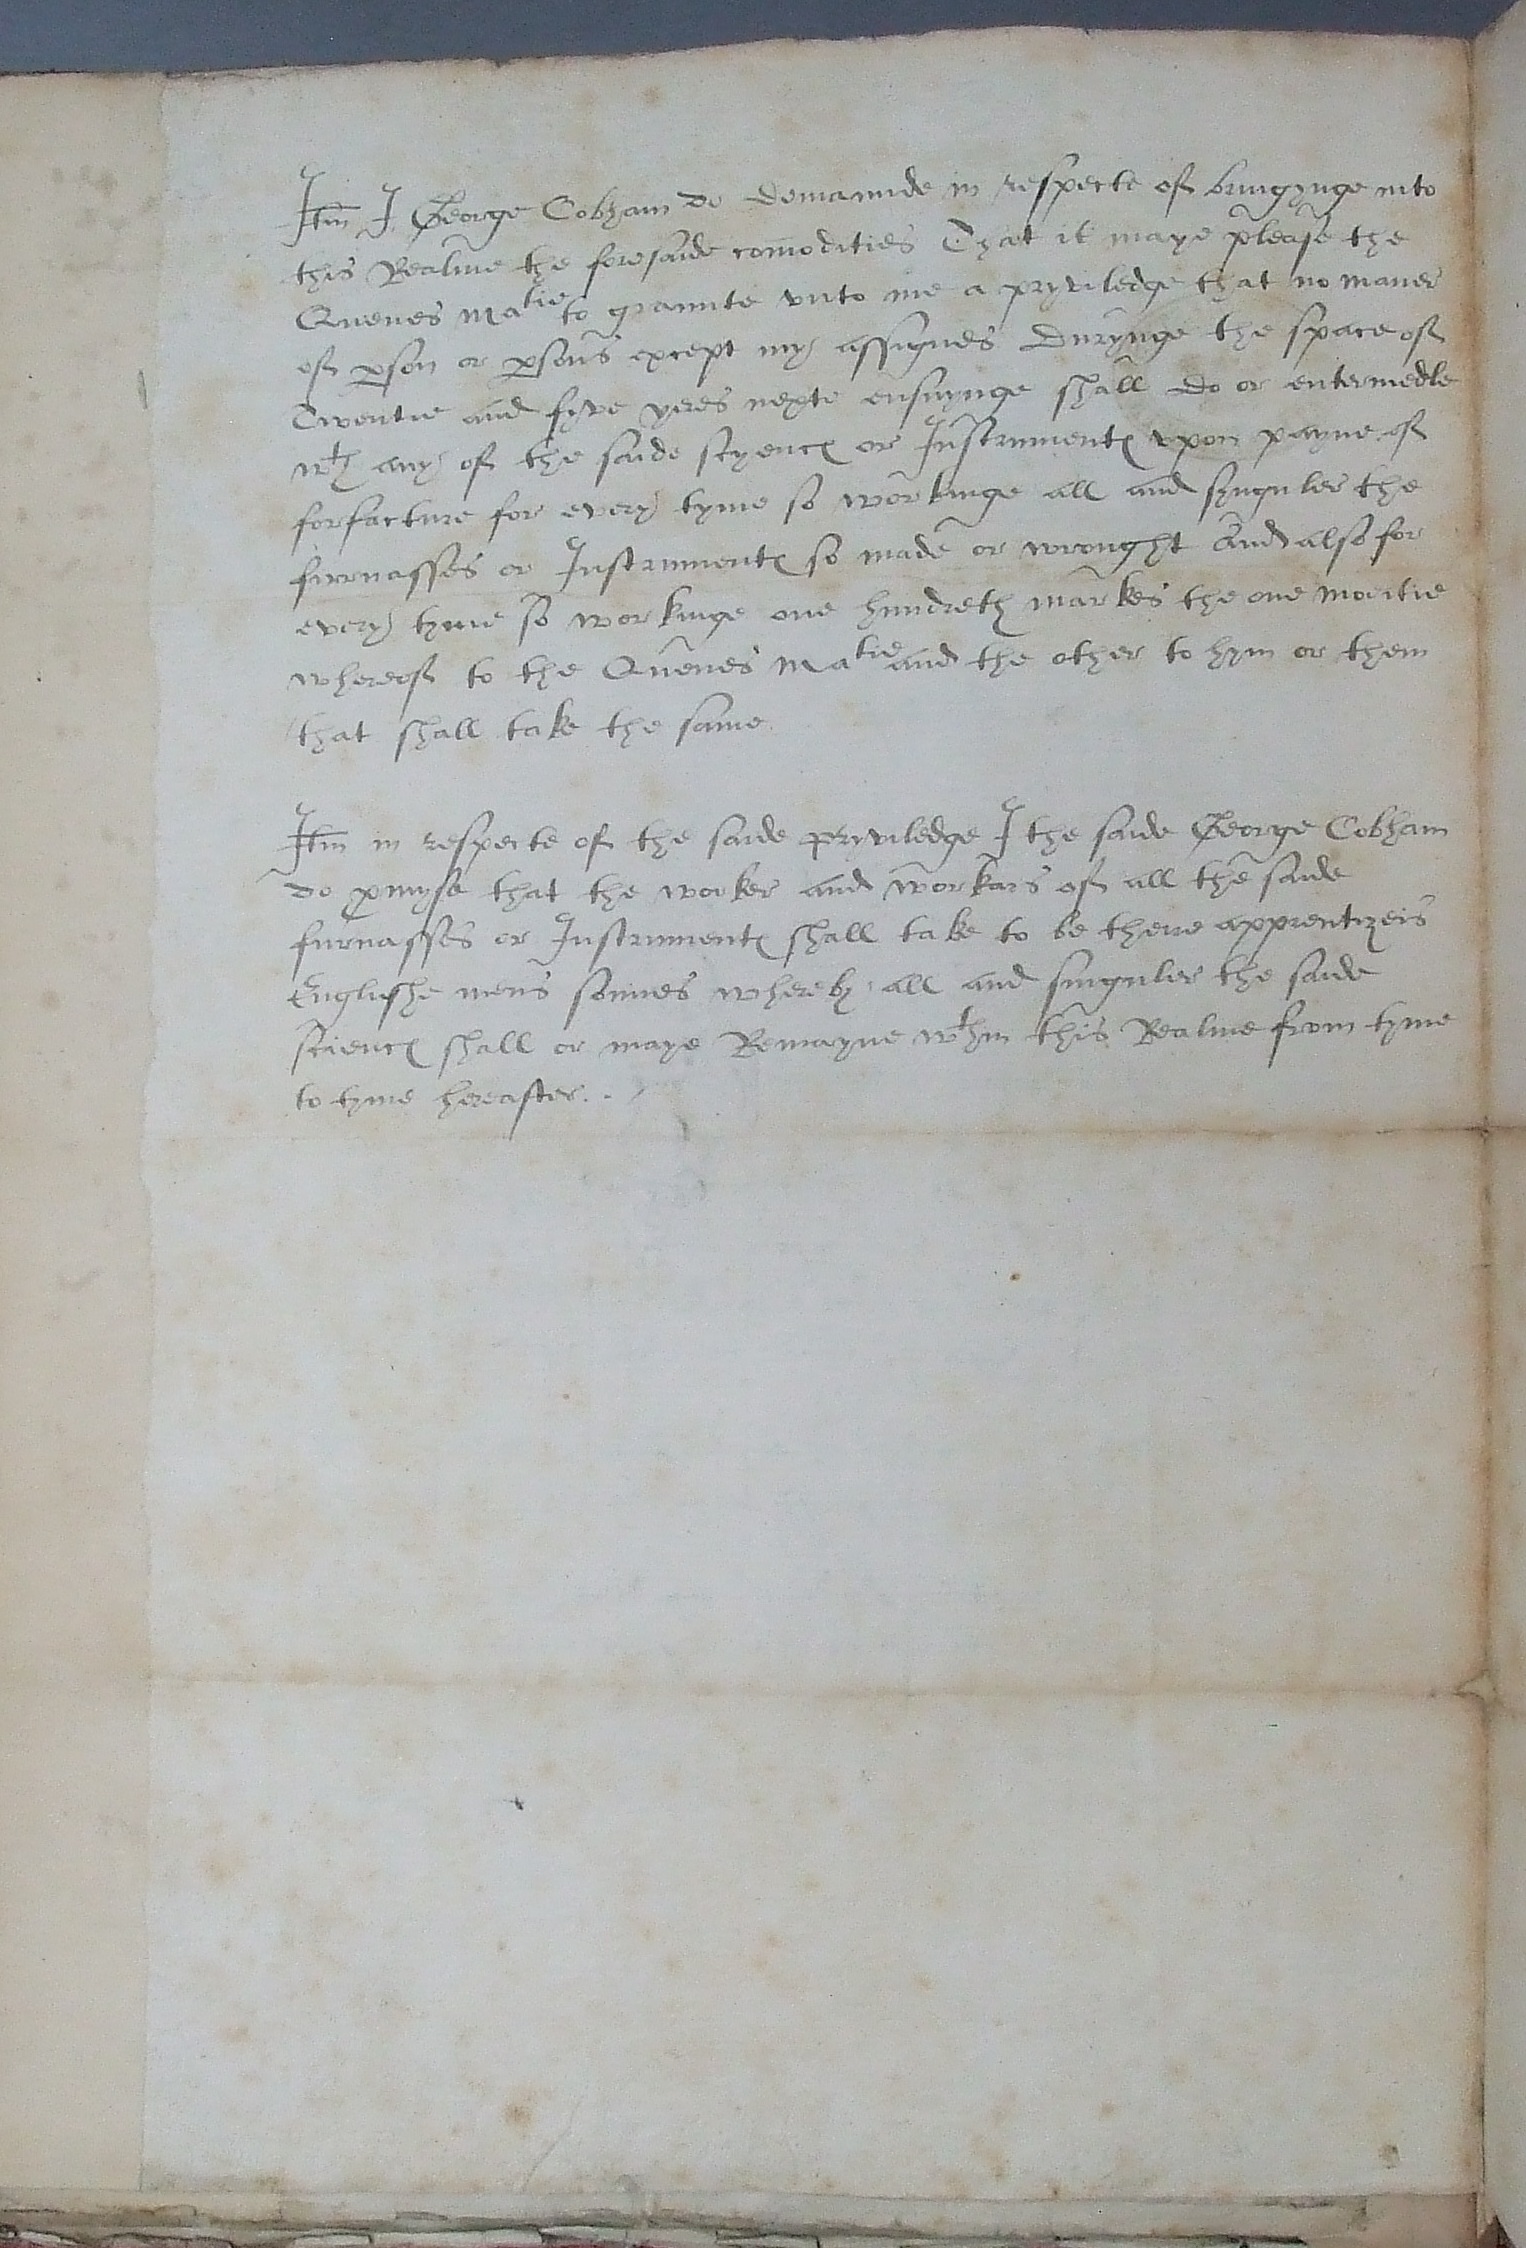 Itm I George Cobham do demaunde in respecte of bringynge into
this Realme the foresaide comodities That it maye please the
Quenes Matie to graunte vnto me a pryviledge that no maner
of pson or psons except my assignes Durynge the space of
Twentie and fyve yeres nexte ensuynge shall do or entermedle
wth any of the saide scyences or Instrumentes vpon payne of
forfacture for every tyme so workinge all and synguler the
furnasses or Instrumentes so made or wrought And also for
every tyme so workinge one hundreth markes the one moeitie
whereof to the Quenes Matie and the other to hym or them
that shall take the same
Itm in respecte of the saide pryviledge I the saide George Cobham
do pmyse that the worker and workars of all the saide
furnasses or Instrumentes shall take to be there apprentizeis
Englishe mens sonnes whereby all and singuler the saide
sciences shall or maye Remayne wthin this Realme from tyme
to tyme hereafter..